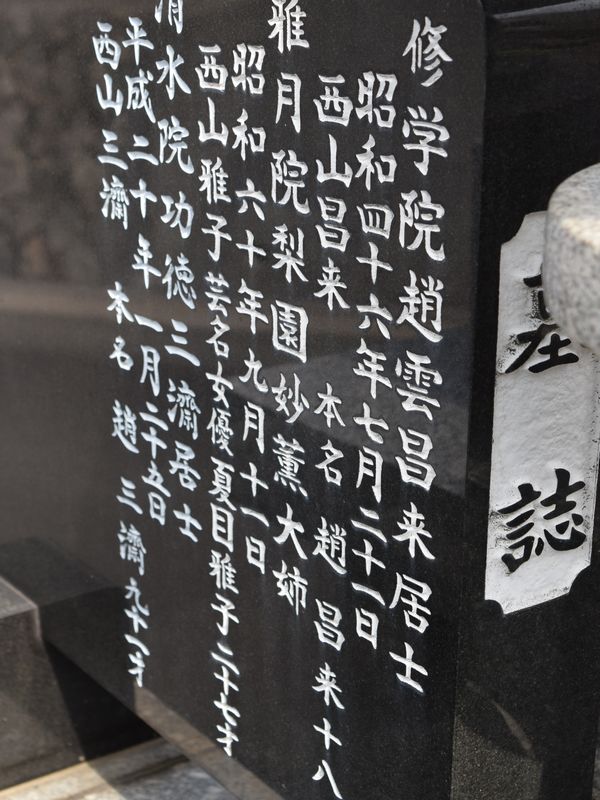 墓誌
修学院趙雲昌来居士
昭和四十六年七月二十一日
西山昌来 本名 趙昌来十八
雅月院梨園妙薫大姉
昭和六十年九月十一日
西山雅子芸名女優夏目雅子二十七才
清水院功徳三濟居士
平成二十年一月二十五日
西山三濟 本名 趙三濟九十一才